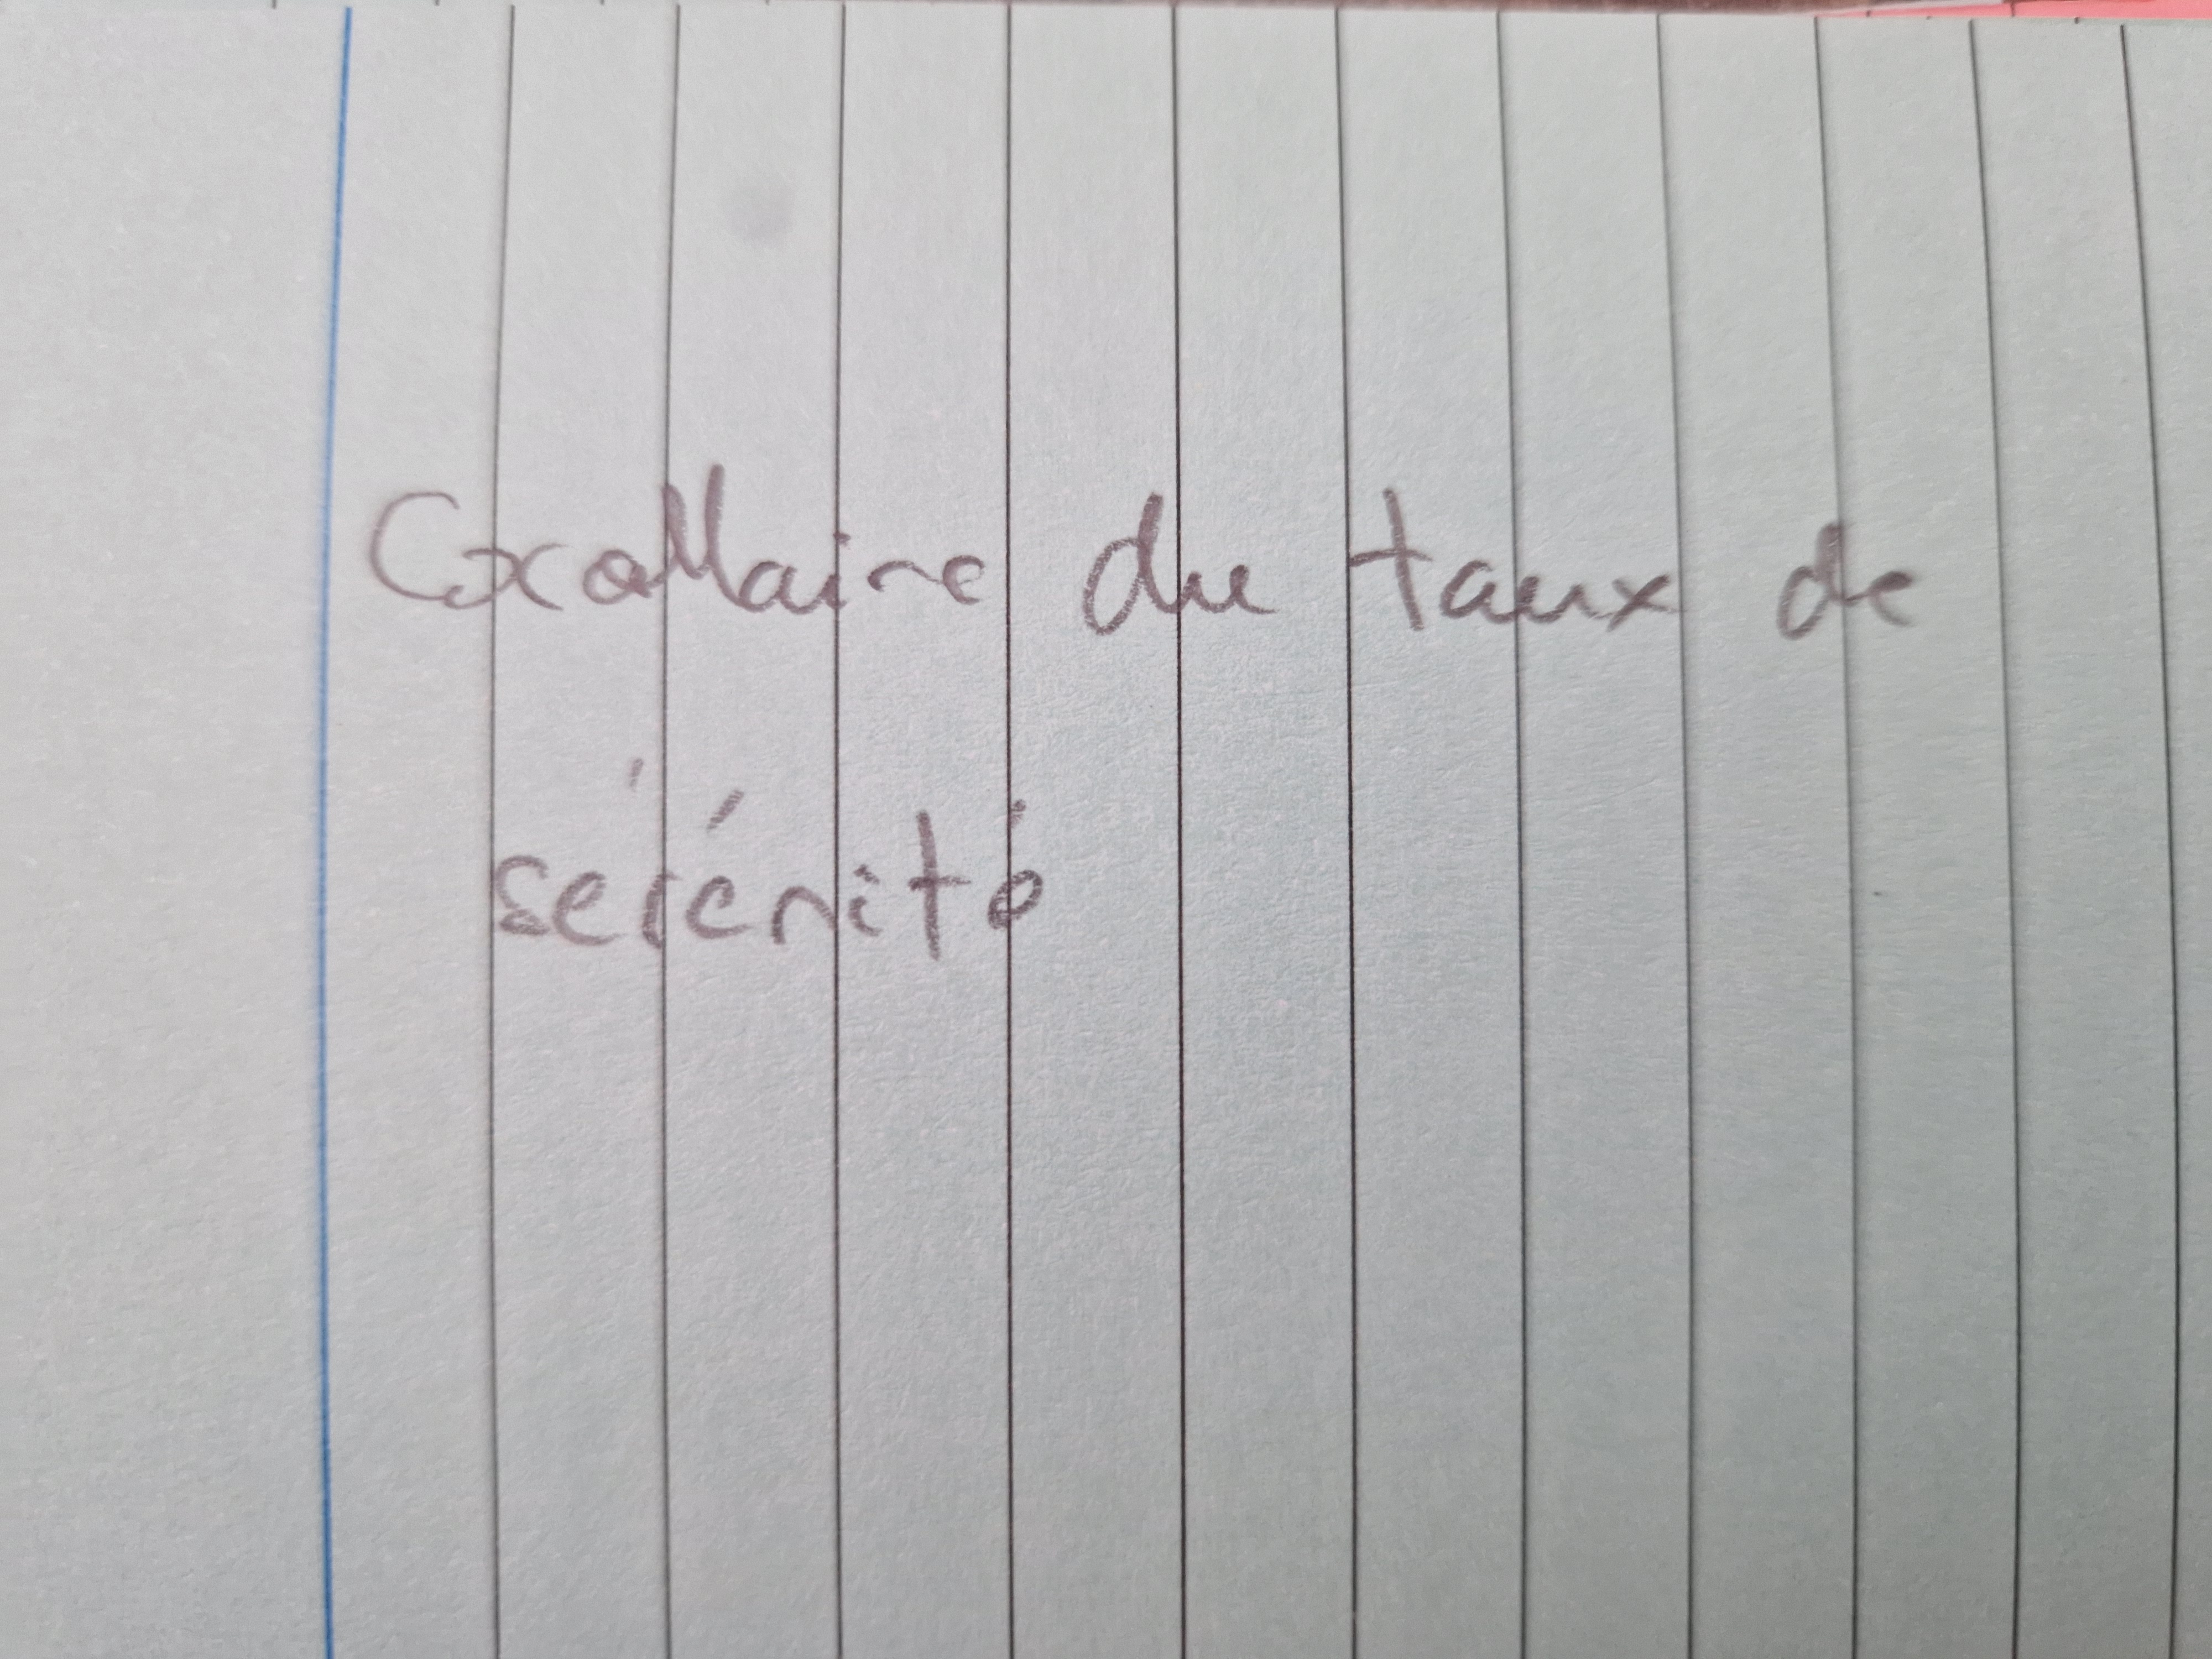 Corollaire du taux de
sérénité